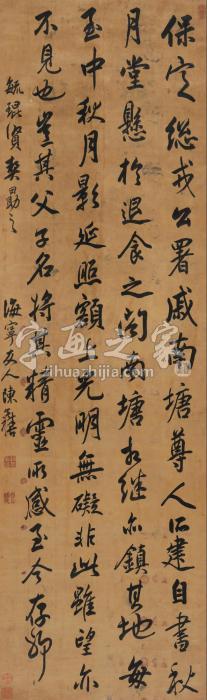 保定总戎公署戚南塘尊人所建自書秋
月堂懸於退食之間南塘相繼亦鎮其地每
至中秋月影延照額上光明無礙非此雖望亦
不見也豈其父子名將其精靈所感至今存耶
毓琨賢契勗之
海寧友人陳
字画之家
zihuazhijia.com